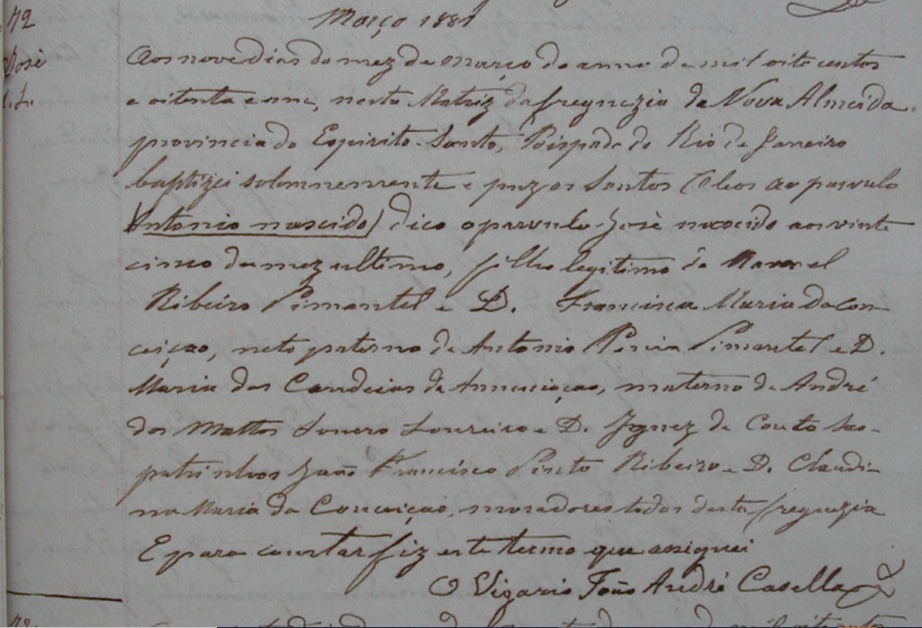 42
Março 1881
José
Aos nove dias do mez de março do anno de mil oito centos
e oitenta e um, nesta Matriz da freguezia de Nova Almeida
provincia do Espirito Santo, Bispado do Rio de Janeiro
baptizei solemnemente e puz os Santos Oleos ao parvulo
(Antonio nascido) digo o parvulo José nascido aos vinte
cinco do mez ultimo, filho legitimo de Manoel
Ribeiro Pimentel e D. Francisca Maria da Con-
ceiçao, neto paterno de Antonio Pimentel e D.
Maria das Candeias da Annuciaçao, materno de André
dos Mattos Loureiro e D. Ignez do Couto Sao
patrinhos João Francisco Pinto Ribeiro e D. Claudi-
na Maria da Conceiçao, moradores todos desta freguezia
E para constar fiz este termo que assignei
O Vigario João André Casella